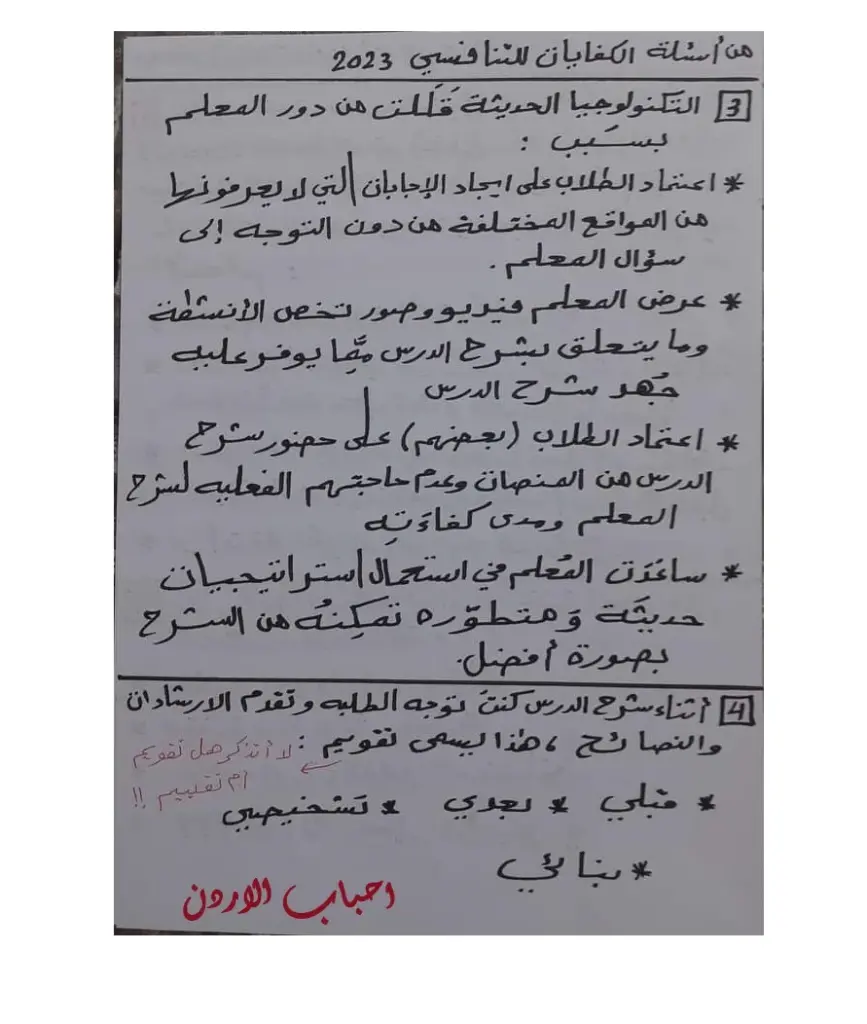 من أسئلة الكفايات للتنافسي 2023
3 التكنولوجيا الحديثة قَلَلت من دور المعلم
بسَبب :
* اعتماد الطلاب على ايجاد الإجابات التي لا يعرفونها
من المواقع المختلفة من دون التوجه إلى
سؤال المعلم .
* عرض المعلم فيديو وصور تخص الأنشطة
وما يتعلق بشرح الدرس مِمَّا يوفر عليه
جُهد شرح الدرس
* اعتماد الطلاب (بعضهم) على حضور شرح
الدرس من المنصات وعدم حاجتهم الفعليه لشرح
المعلم ومدى كفاءَتِه
* ساعَدَت المُعلم في استعمال استراتيجيات
حديثَة وَمتطوّره تمكِنهُ من الشرح
بصورة أفضل.
4 أثناء شرح الدرس كنتُ توجه الطلبه وتقدم الارشادات
والنصائح ، هذا يسمى تقويم :
لا أتذكر هل تقويم
أم تقييم !!
* قبلي * بعدي * تَشخيصي
* بنائي
احباب الاردن